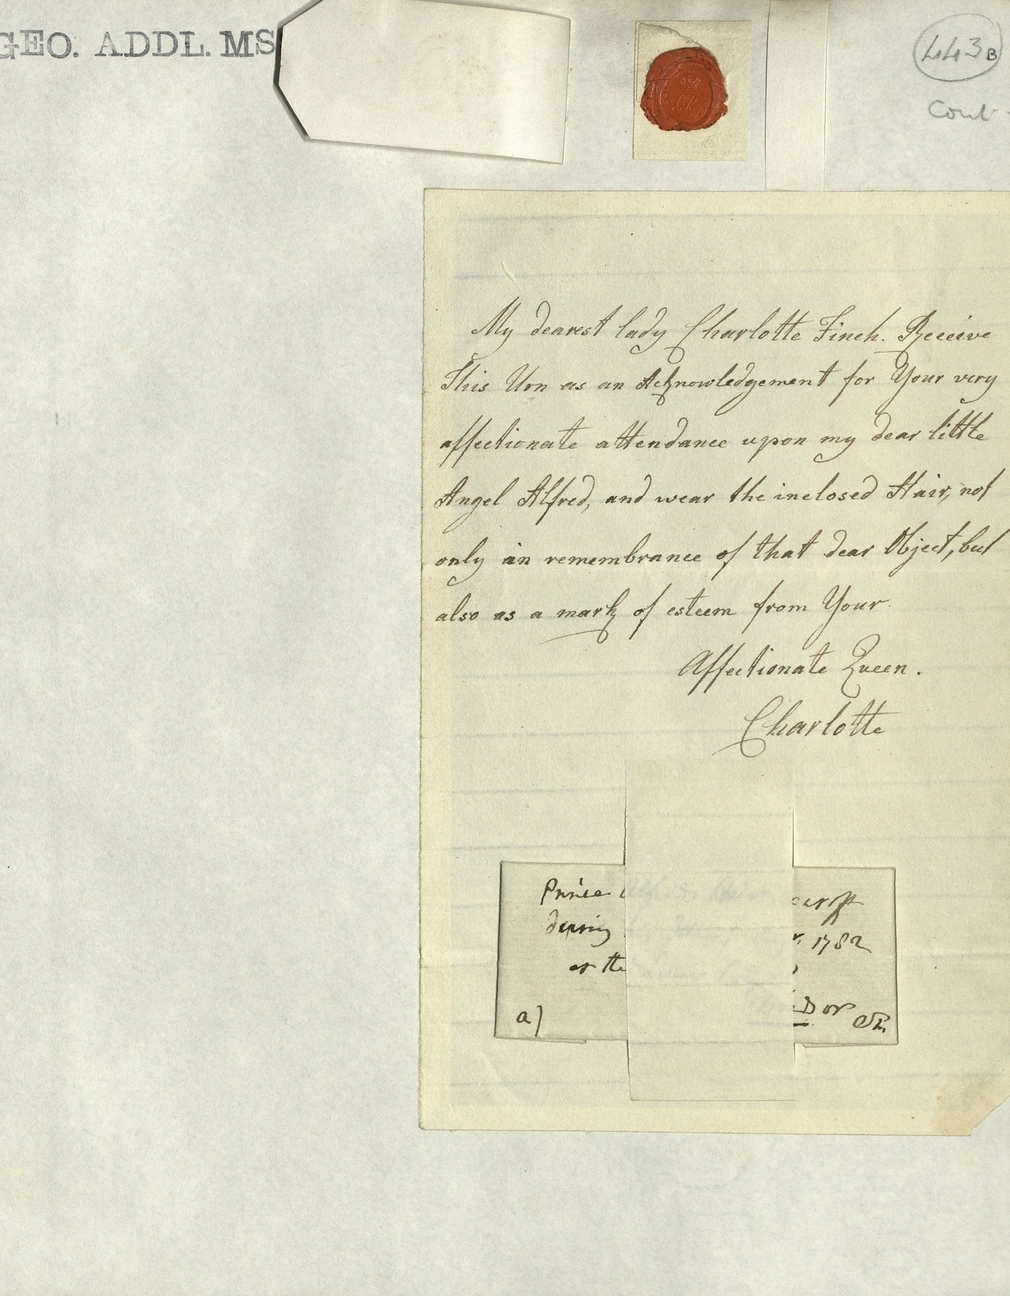 GEO. ADDL. MS
443B
Cont
My dearest lady Charlotte Finch. Receive
This Urn as an Acknowledgement for Your very
affectionate attendance upon my dear little
Angel Alfred, and wear the inclosed Hair, not
only in remembrance of that dear Object, but
also as a mark of esteem from Your
Affectionate Queen.
Charlotte
Prince
during 1782
or the
a)